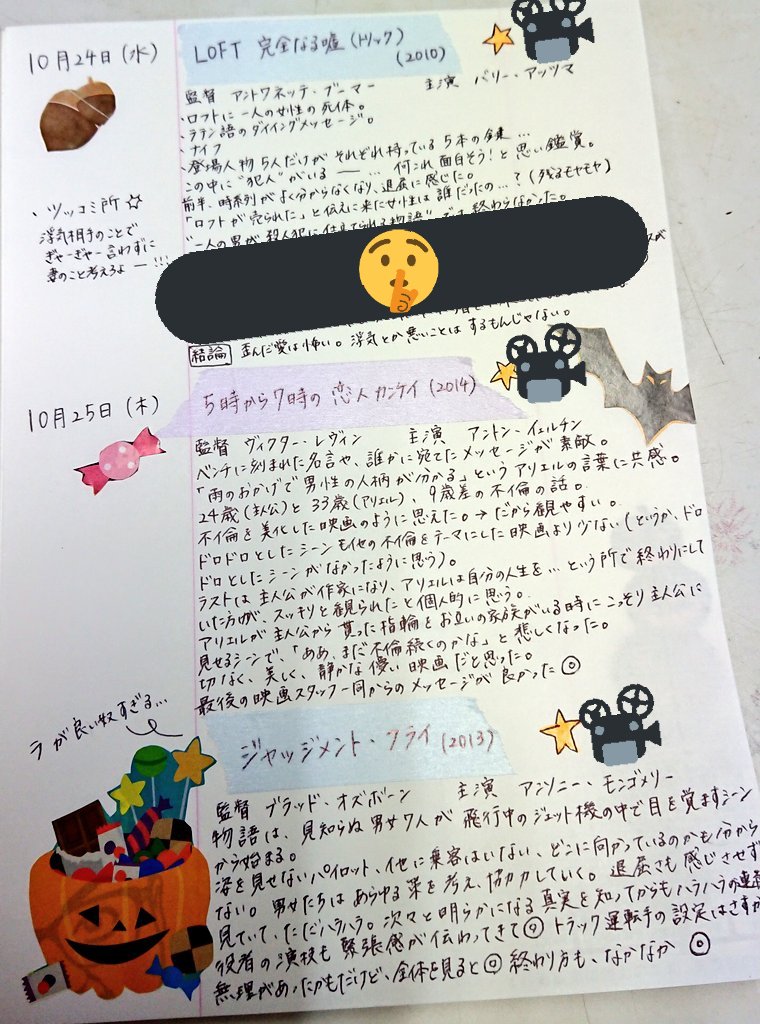 10月24日(水)
LOFT 完全なる嘘(トリック)
(2010)
監督 アントワネッテ・ブーマー 主演 バリー・アッツマ
・ロフトに一人の女性の死体。
・ラテン語のダイイングメッセージ。
・ナイフ
・登場人物5人だけがそれぞれ持っている5本の鍵…
この中に"犯人"がいる ー … 何これ面白そう!と思い鑑賞。
前半、時系列がよく分からなくなり、退屈に感じた。
「ロフトが売られた」と伝えに来た女性は誰だったの…?(残るモヤモヤ)
"一人の男が殺人犯に仕立てられる物語"でも終わらなかった。
・ツッコミ所☆
浮気相手のことで
ぎゃーぎゃー言わずに
妻のこと考えろよー!!!
結論 歪んだ愛は怖い。浮気とか悪いことはするもんじゃない。
10月25日(木)
5時から7時の恋人カンケイ(2014)
監督 ヴィクター・レヴィン 主演 アントン・イェルチン
ベンチに刻まれた名言や、誰かに宛てたメッセージが素敵。
「雨のおかげで男性の人柄が分かる」というアリエルの言葉に共感。
24歳(主人公)と33歳(アリエル)、9歳差の不倫の話。
不倫を美化した映画のように思えた。→だから観やすい。
ドロドロとしたシーンも他の不倫をテーマにした映画より少ない(というか、ドロ
ドロとしたシーンがなかったように思う)。
ラストは主人公が作家になり、アリエルは自分の人生を…という所で終わりにして
いた方が、スッキリと観られたと個人的に思う。
アリエルが主人公から貰った指輪をお互いの家族がいる時にこっそり主人公に
見せるシーンで、「ああ、まだ不倫続くのかな」と悲しくなった。
切なく、美しく、静かな優しい映画だと思った。
最後の映画スタッフ一同からのメッセージが良かった◎
ラが良い奴すぎる…
ジャッジメント・フライ(2013)
監督 ブラッド・オズボーン 主演 アンソニー・モンゴメリー
物語は、見知らぬ男女7人が飛行中のジェット機の中で目を覚ますシーン
から始まる。
姿を見せないパイロット、他に乗客はいない、どこに向かっているのかも分から
ない。男女たちはあらゆる策を考え、協力していく。退屈さも感じさせず
見ていて、ただハラハラ。次々と明らかになる真実を知ってからもハラハラの連続
役者の演技も緊張感が伝わってきて◎ トラック運転手の設定はさすが
無理があったかもだけど、全体を見ると◎ 終わり方も、なかなか◎